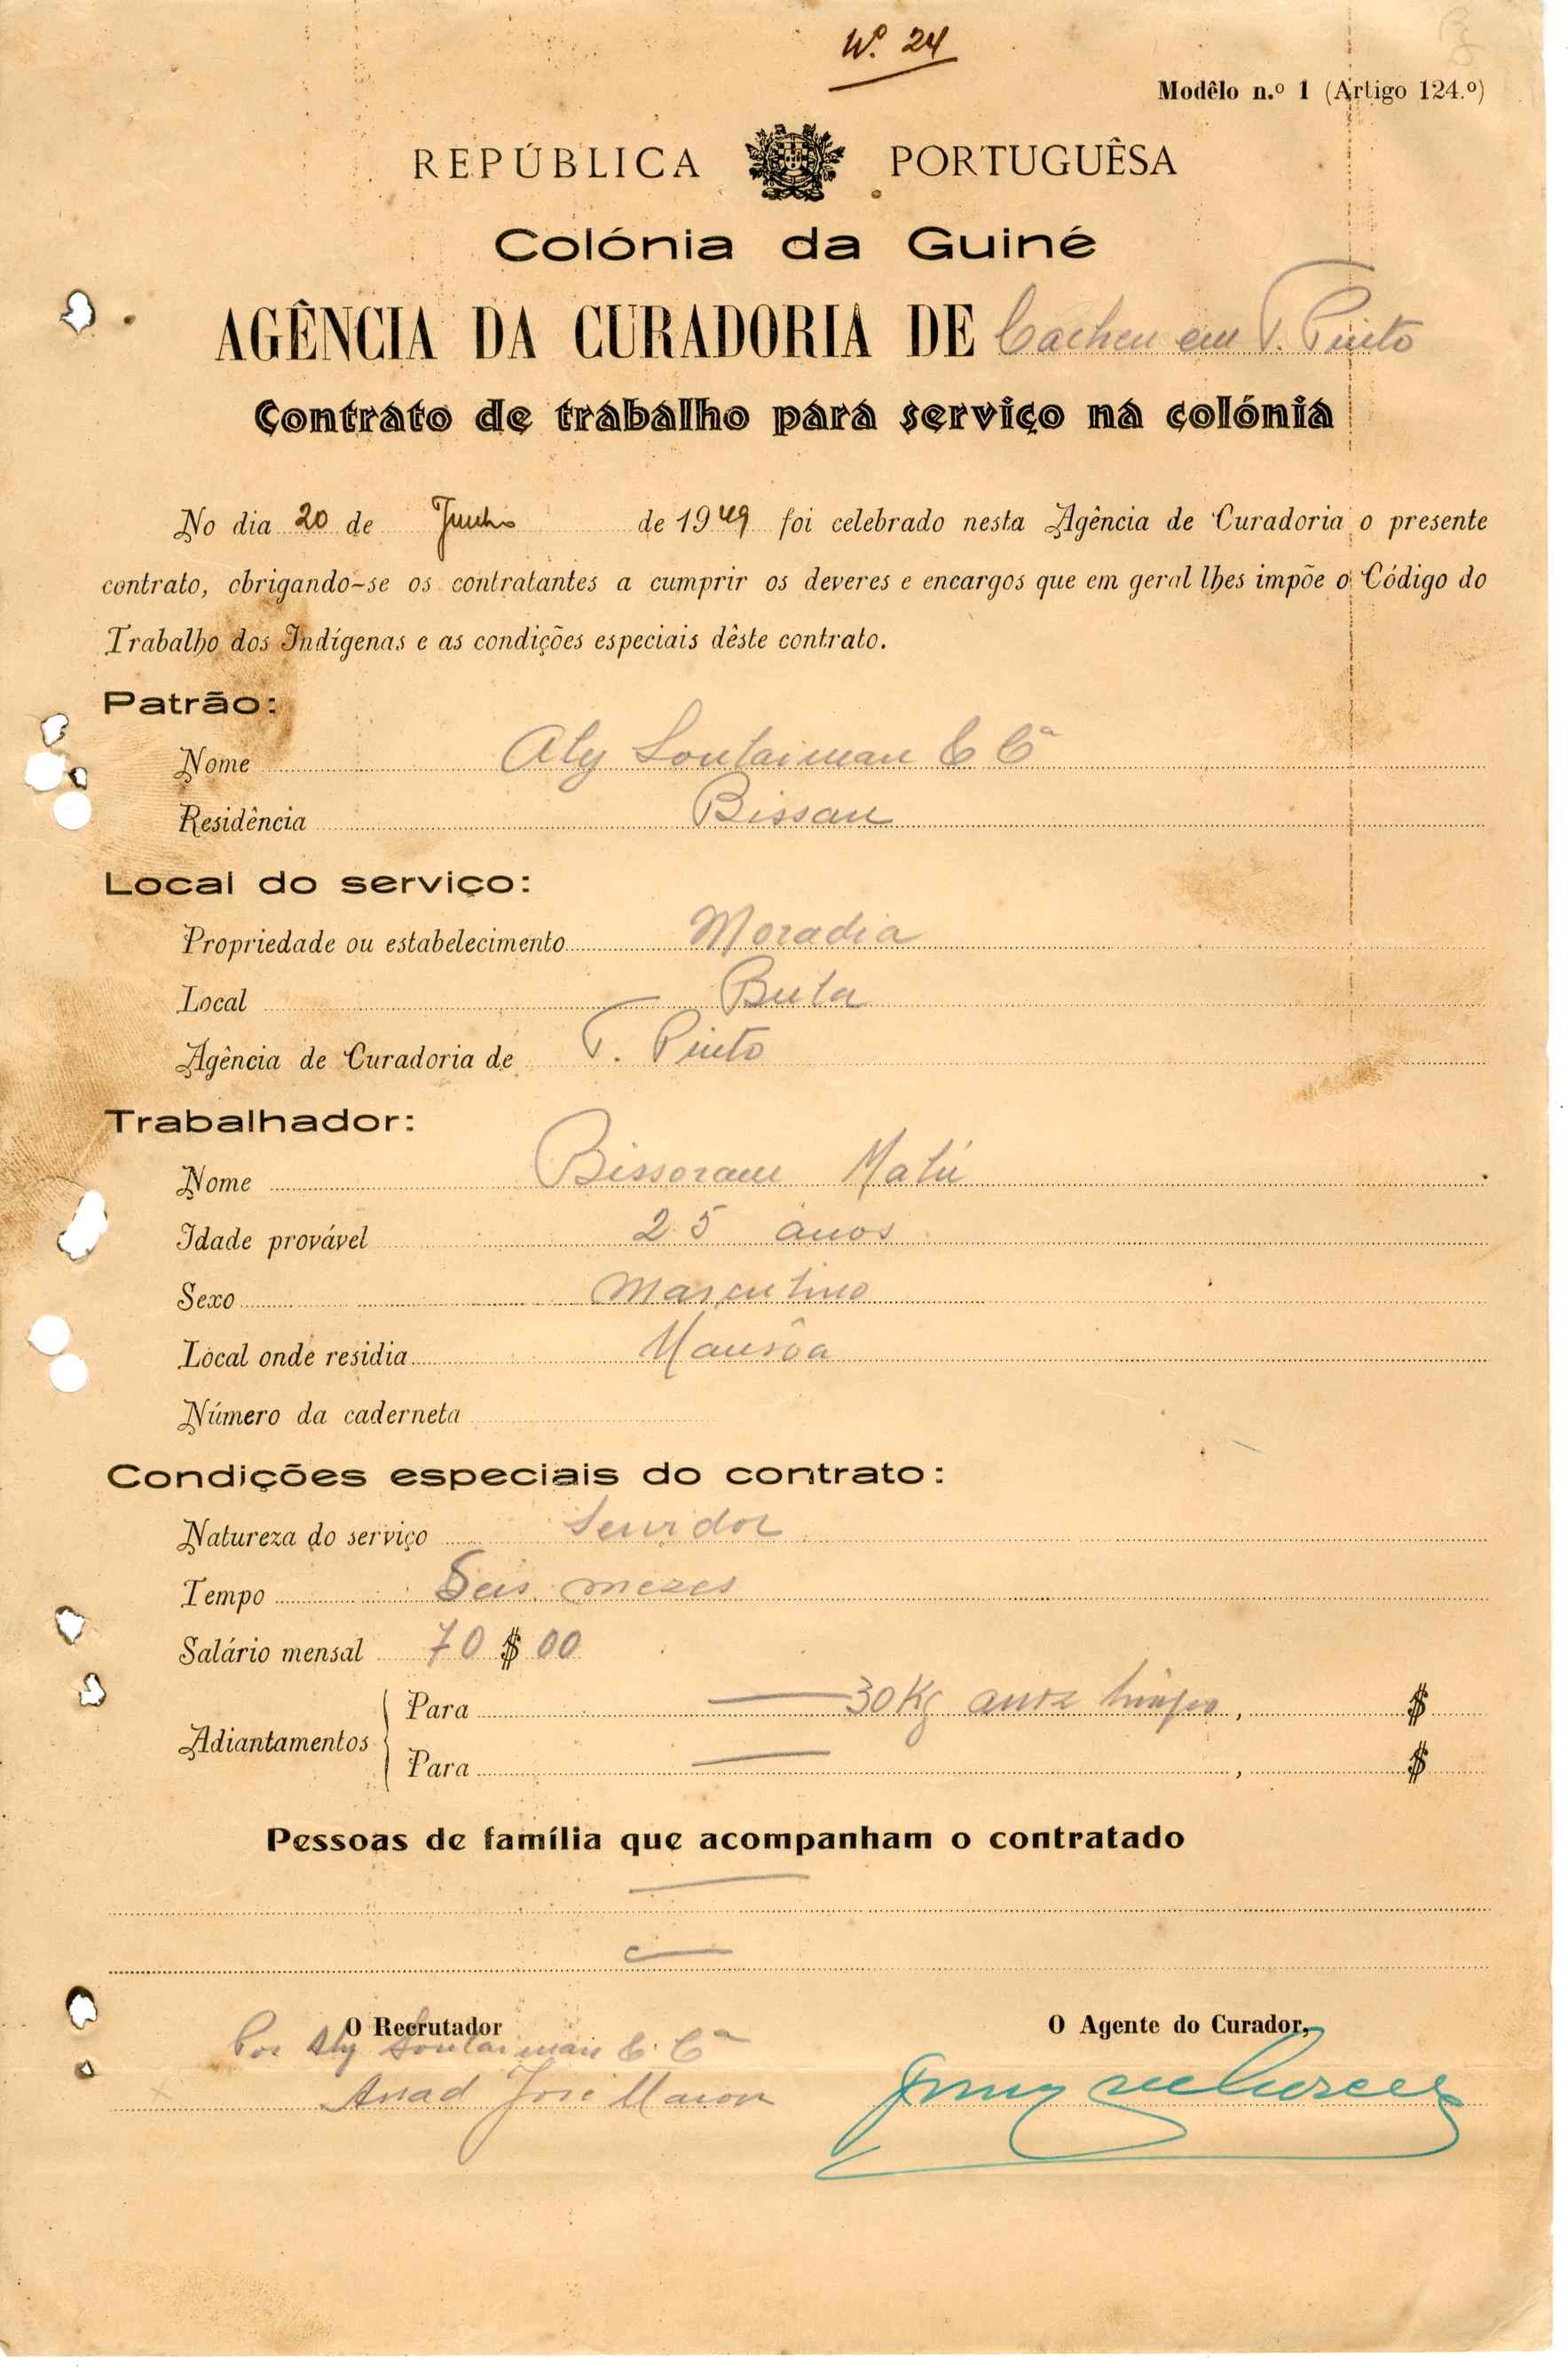 Nº 24
Modêlo n.º 1 (Artigo 124.º)
REPÚBLICA PORTUGUÊSA
Colónia da Guiné
AGÊNCIA DA CURADORIA DE Cacheu em T. Pinto
Contrato de trabalho para serviço na colónia
No dia 20 de Junho de 1949 foi celebrado nesta Agência de Curadoria o presente
contrato, obrigando-se os contratantes a cumprir os deveres e encargos que em geral lhes impõe o Código do
Trabalho dos Indígenas e as condições especiais dêste contrato.
Patrão:
Nome Aly Soulaiman & Cª
Residência Bissau
Local do serviço:
Propriedade ou estabelecimento Moradia
Local Bula
Agência de Curadoria de T. Pinto
Trabalhador:
Nome Bissoram Matú
Idade provável 25 anos
Sexo Masculino
Local onde residia Mansôa
Número da caderneta
Condições especiais do contrato:
Natureza do serviço Servidor
Tempo Seis mezes
Salário mensal 70 $ 00
Adiantamentos
Para — 30 Kg arroz limpo, $
Para — , $
Pessoas de família que acompanham o contratado
O Recrutador
O Agente do Curador,
Por Aly Soulaiman & Cª
José